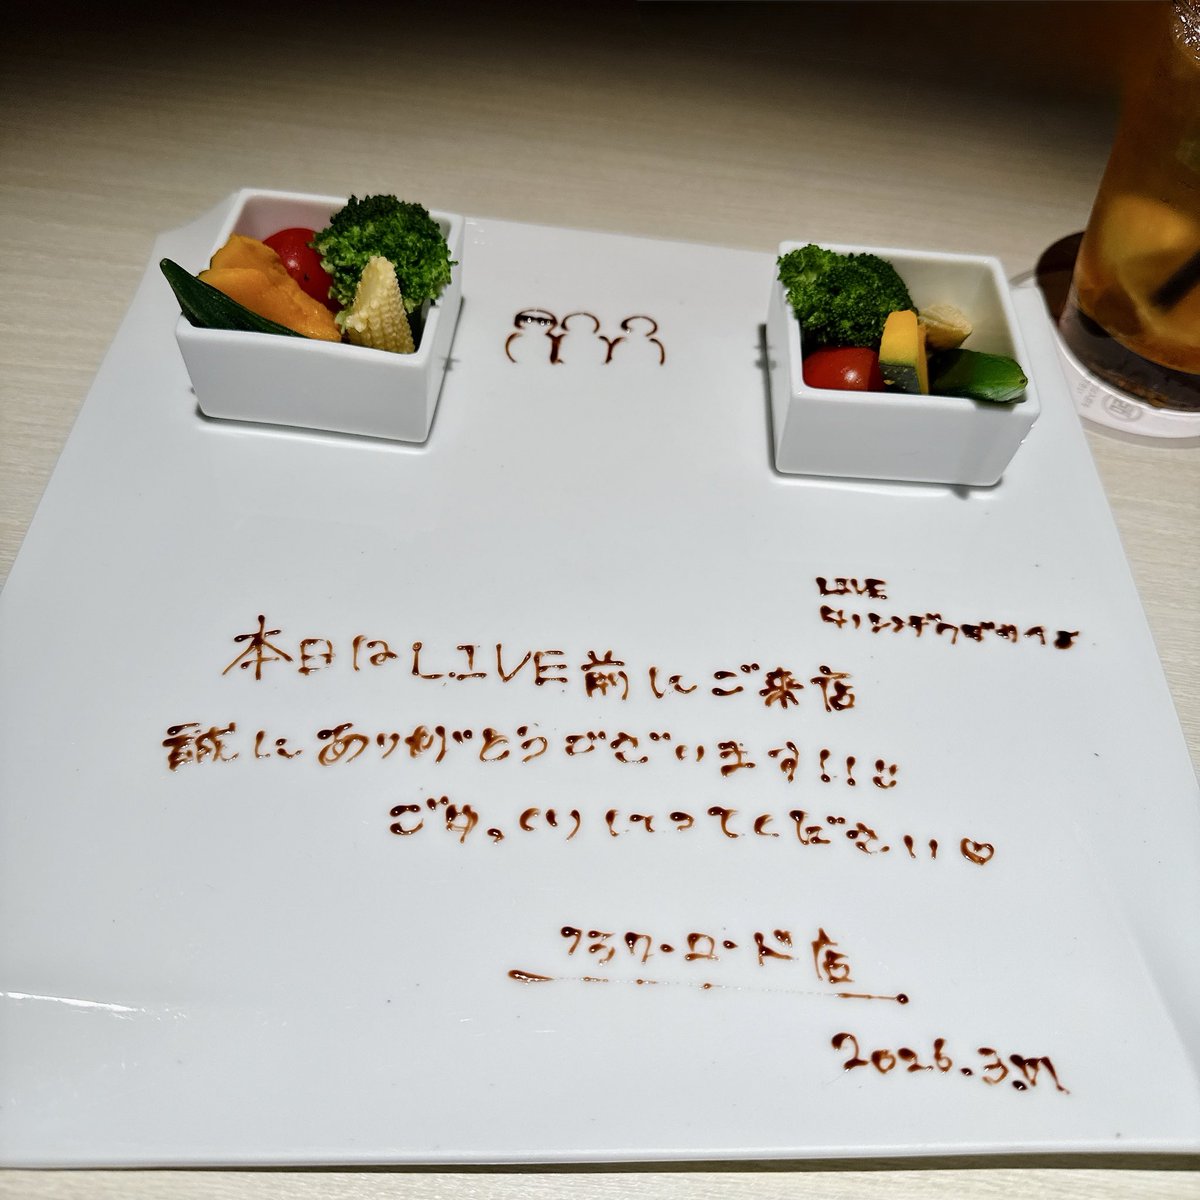 LIVE
タノシンデクダサイネ
本日はLIVE前にご来店
誠にありがとうございます!!
ごゆっくりしてってください♡
フラワーロード店